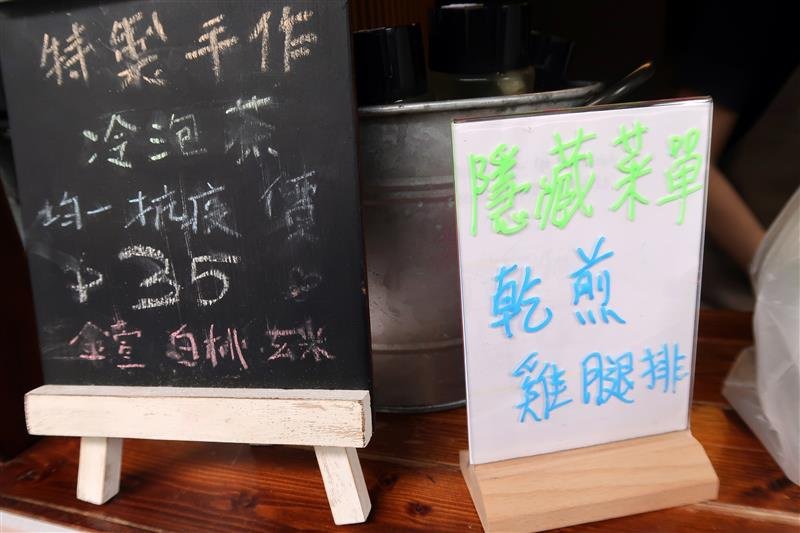 特製手作
冷泡茶
均一抗疫價
35
金萱 白桃 玄米
隱藏菜單
乾煎
雞腿排